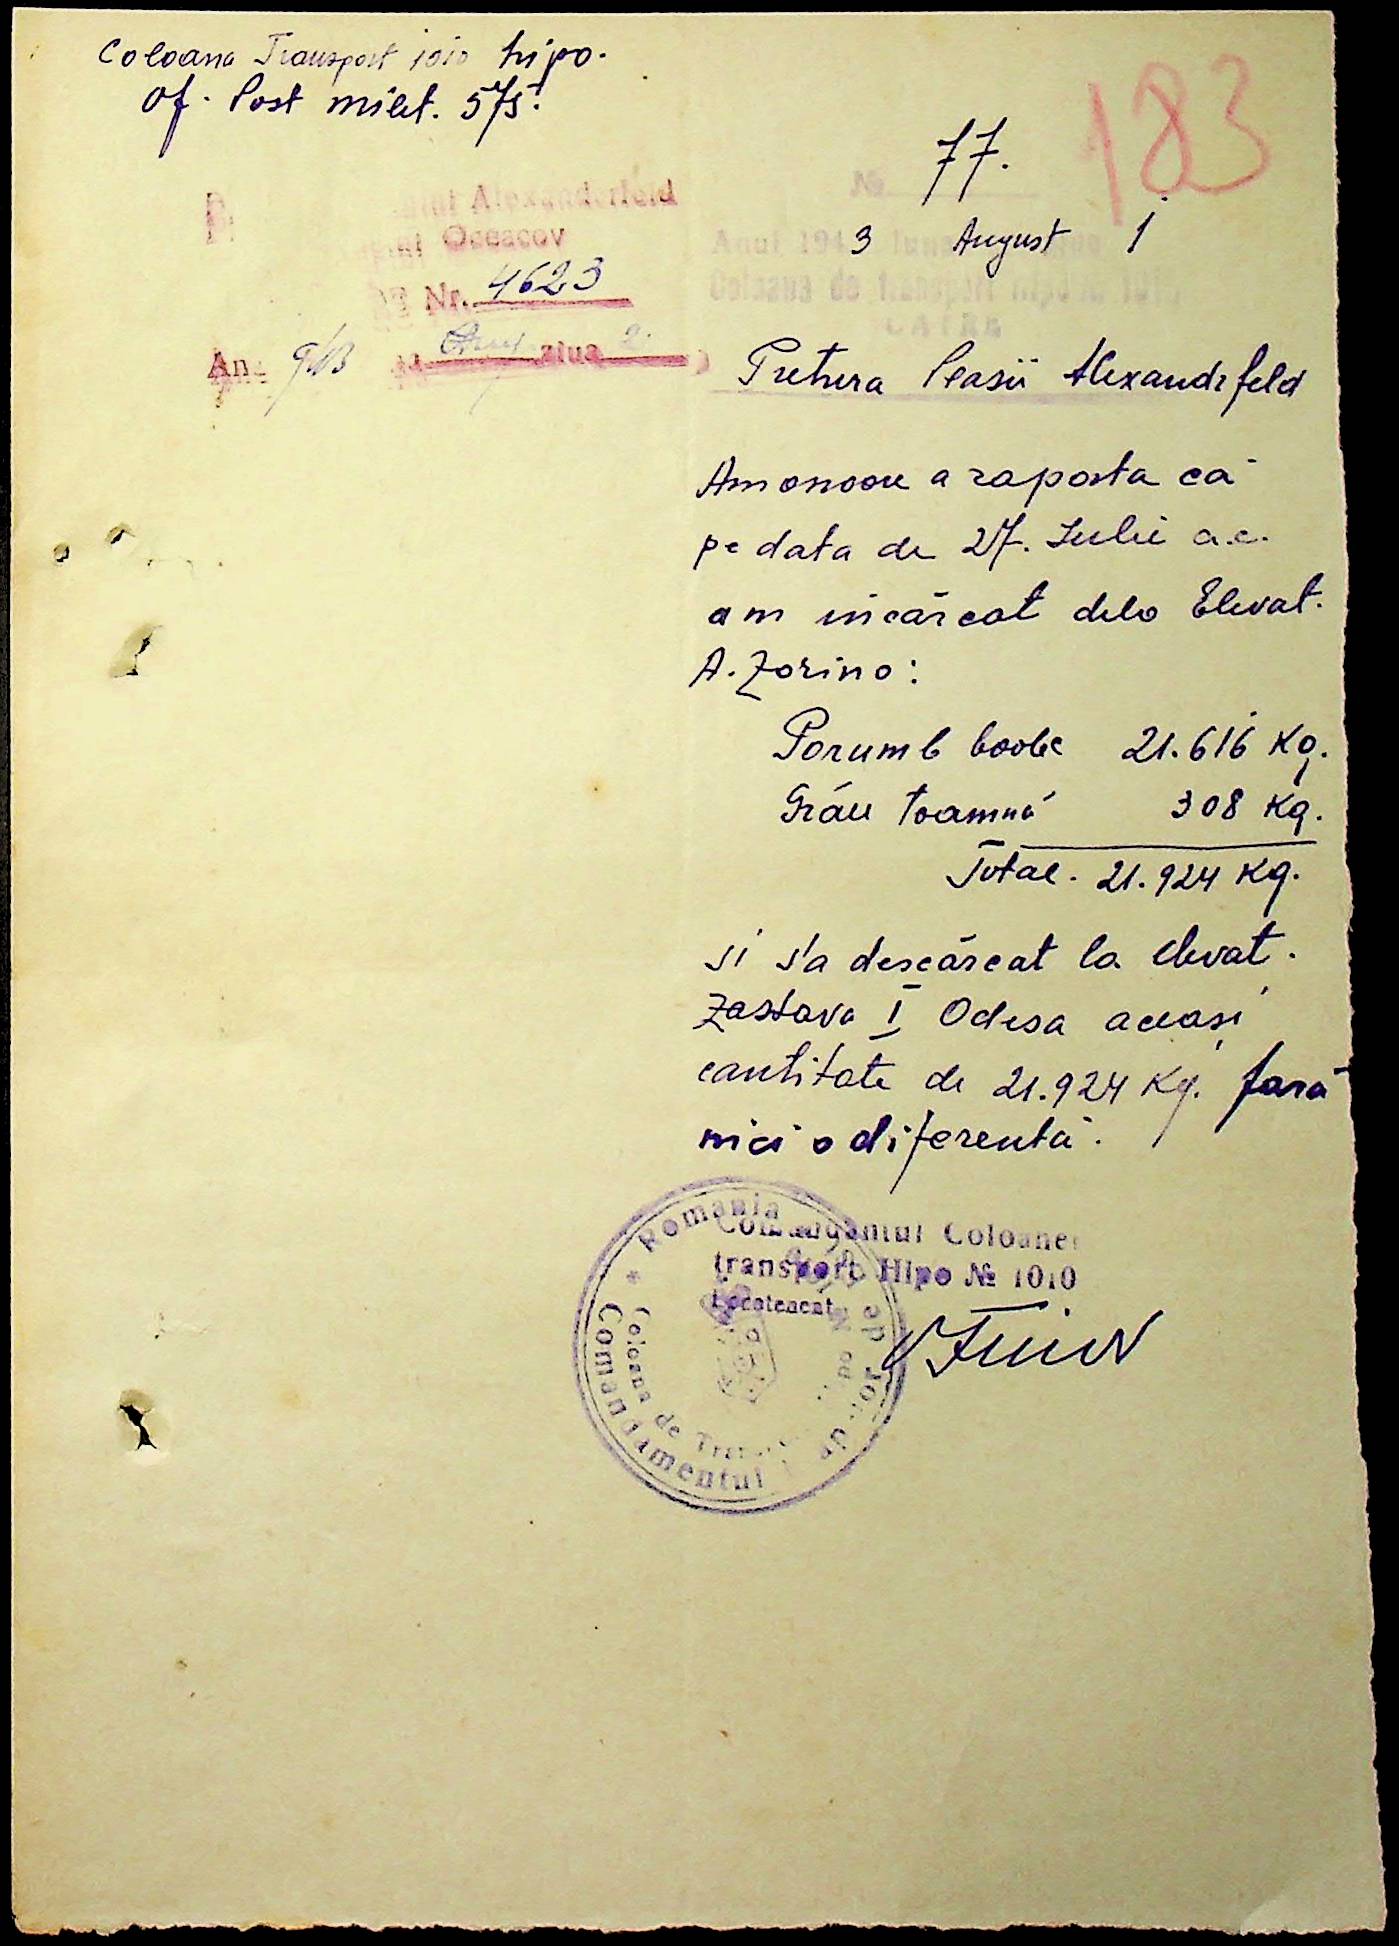 Coloana Transport 1010 hipo.
Of. Post milit. 575.
183
№ 77.
Alexanderfeld
Oceacov
Nr. 4623
An 943 ziua 2.
Anul 1943 luna August 1
Coloana de transport hipo № 1010
CATRE
Pretura Plasii Alexandrfeld
Am onoare a raporta că
pe data de 27. Iulie a.c.
am incărcat dela Elevat.
A. Zorino:
Porumb boobe 21.616 Kg.
Grâu toamnă 308 Kg.
Total. 21.924 Kg.
si s'a descărcat la elevat.
Zastava I Odesa aceasi
cantitate de 21.924 Kg. fară
nici o diferentă.
Comandantul Coloanei
transport Hipo № 1010
Locotenent
* Romania
Comandamentul
Coloana de